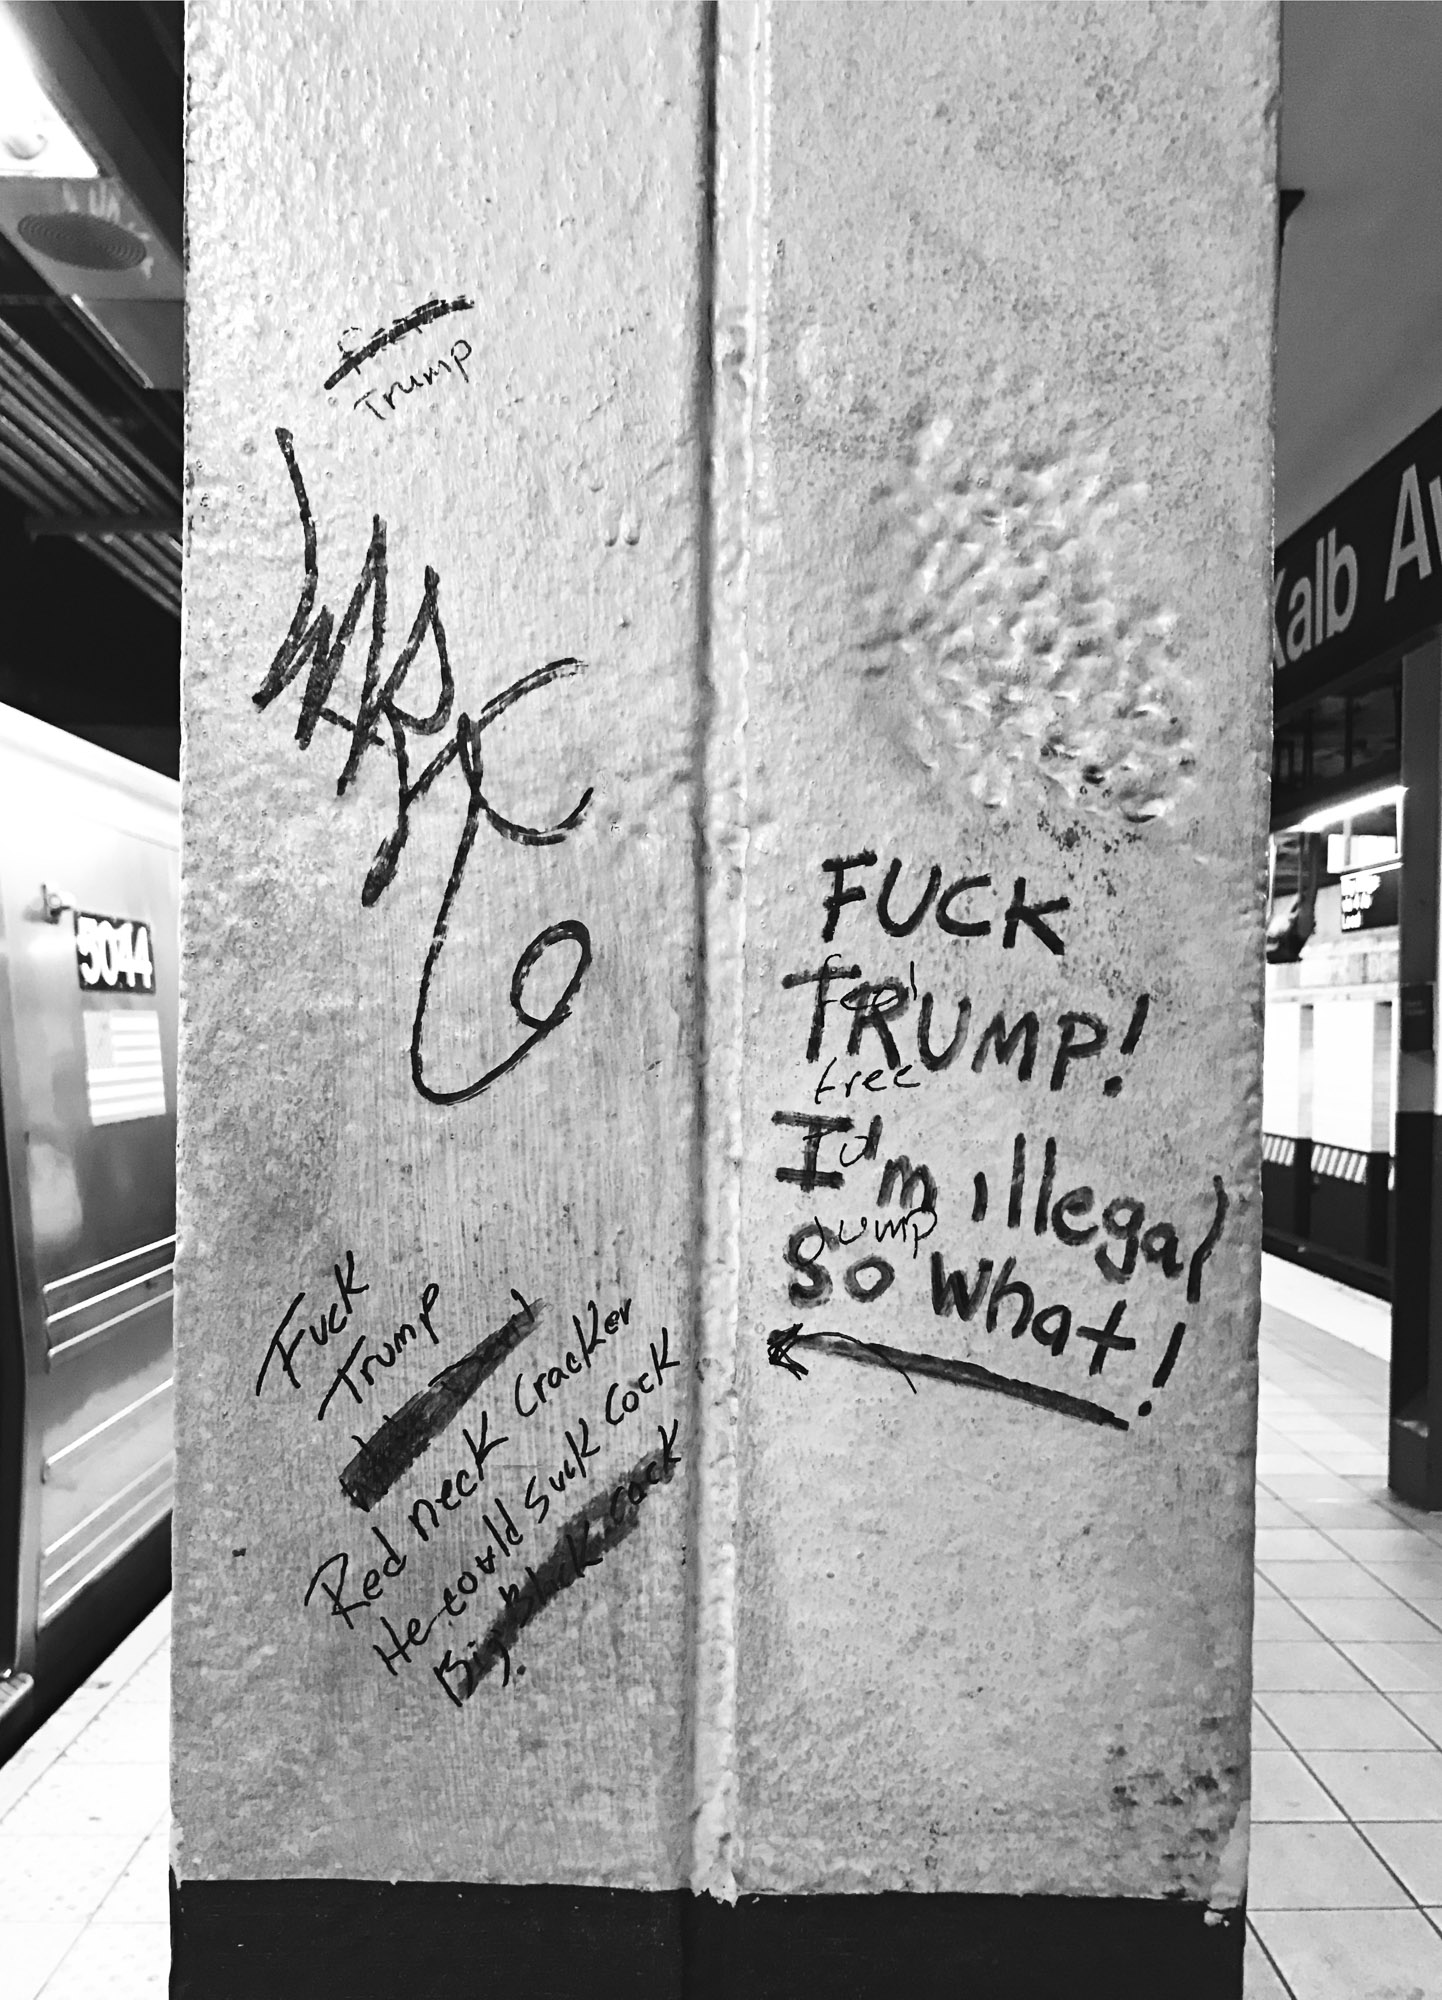 Trump
5044
Kalb Av
FUCK
feel
TRUMP!
free
I'm illegal
d
dump
So What!
Fuck
Trump
Red neck Cracker
He could suck cock
Big Black cock